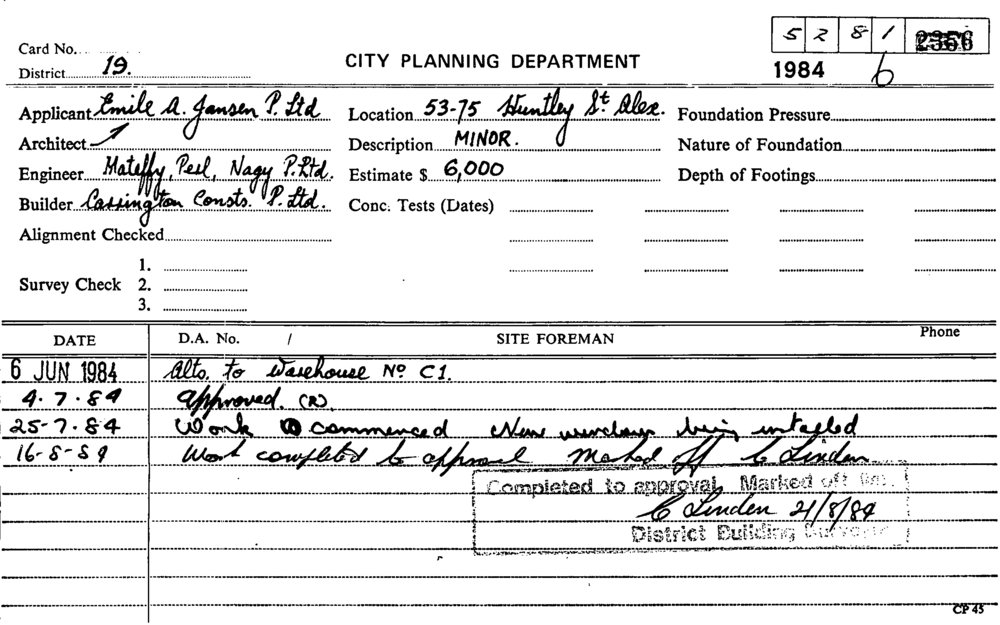 5 2 8 1 2356
Card No.
District 19.
CITY PLANNING DEPARTMENT
1984 6
Applicant Emile A. Jansen P. Ltd
Location 53-75 Huntley St. Alex.
Foundation Pressure
Architect
Description MINOR.
Nature of Foundation
Engineer Mateffy, Perl, Nagy P. Ltd.
Estimate $ 6,000
Depth of Footings
Builder Cassington Consts. P. Ltd.
Conc. Tests (Dates)
Alignment Checked
Survey Check
1.
2.
3.
DATE D.A. No. / SITE FOREMAN Phone
6 JUN 1984 Alts. to Warehouse No C1.
4.7.84 Approved. (R)
25-7.84 Work commenced New windows being installed
16-8-84 Work completed to approval Marked off C Linden
Completed to approval. Marked off
C Linden 21/8/84
District Building Surveyor
CP 45